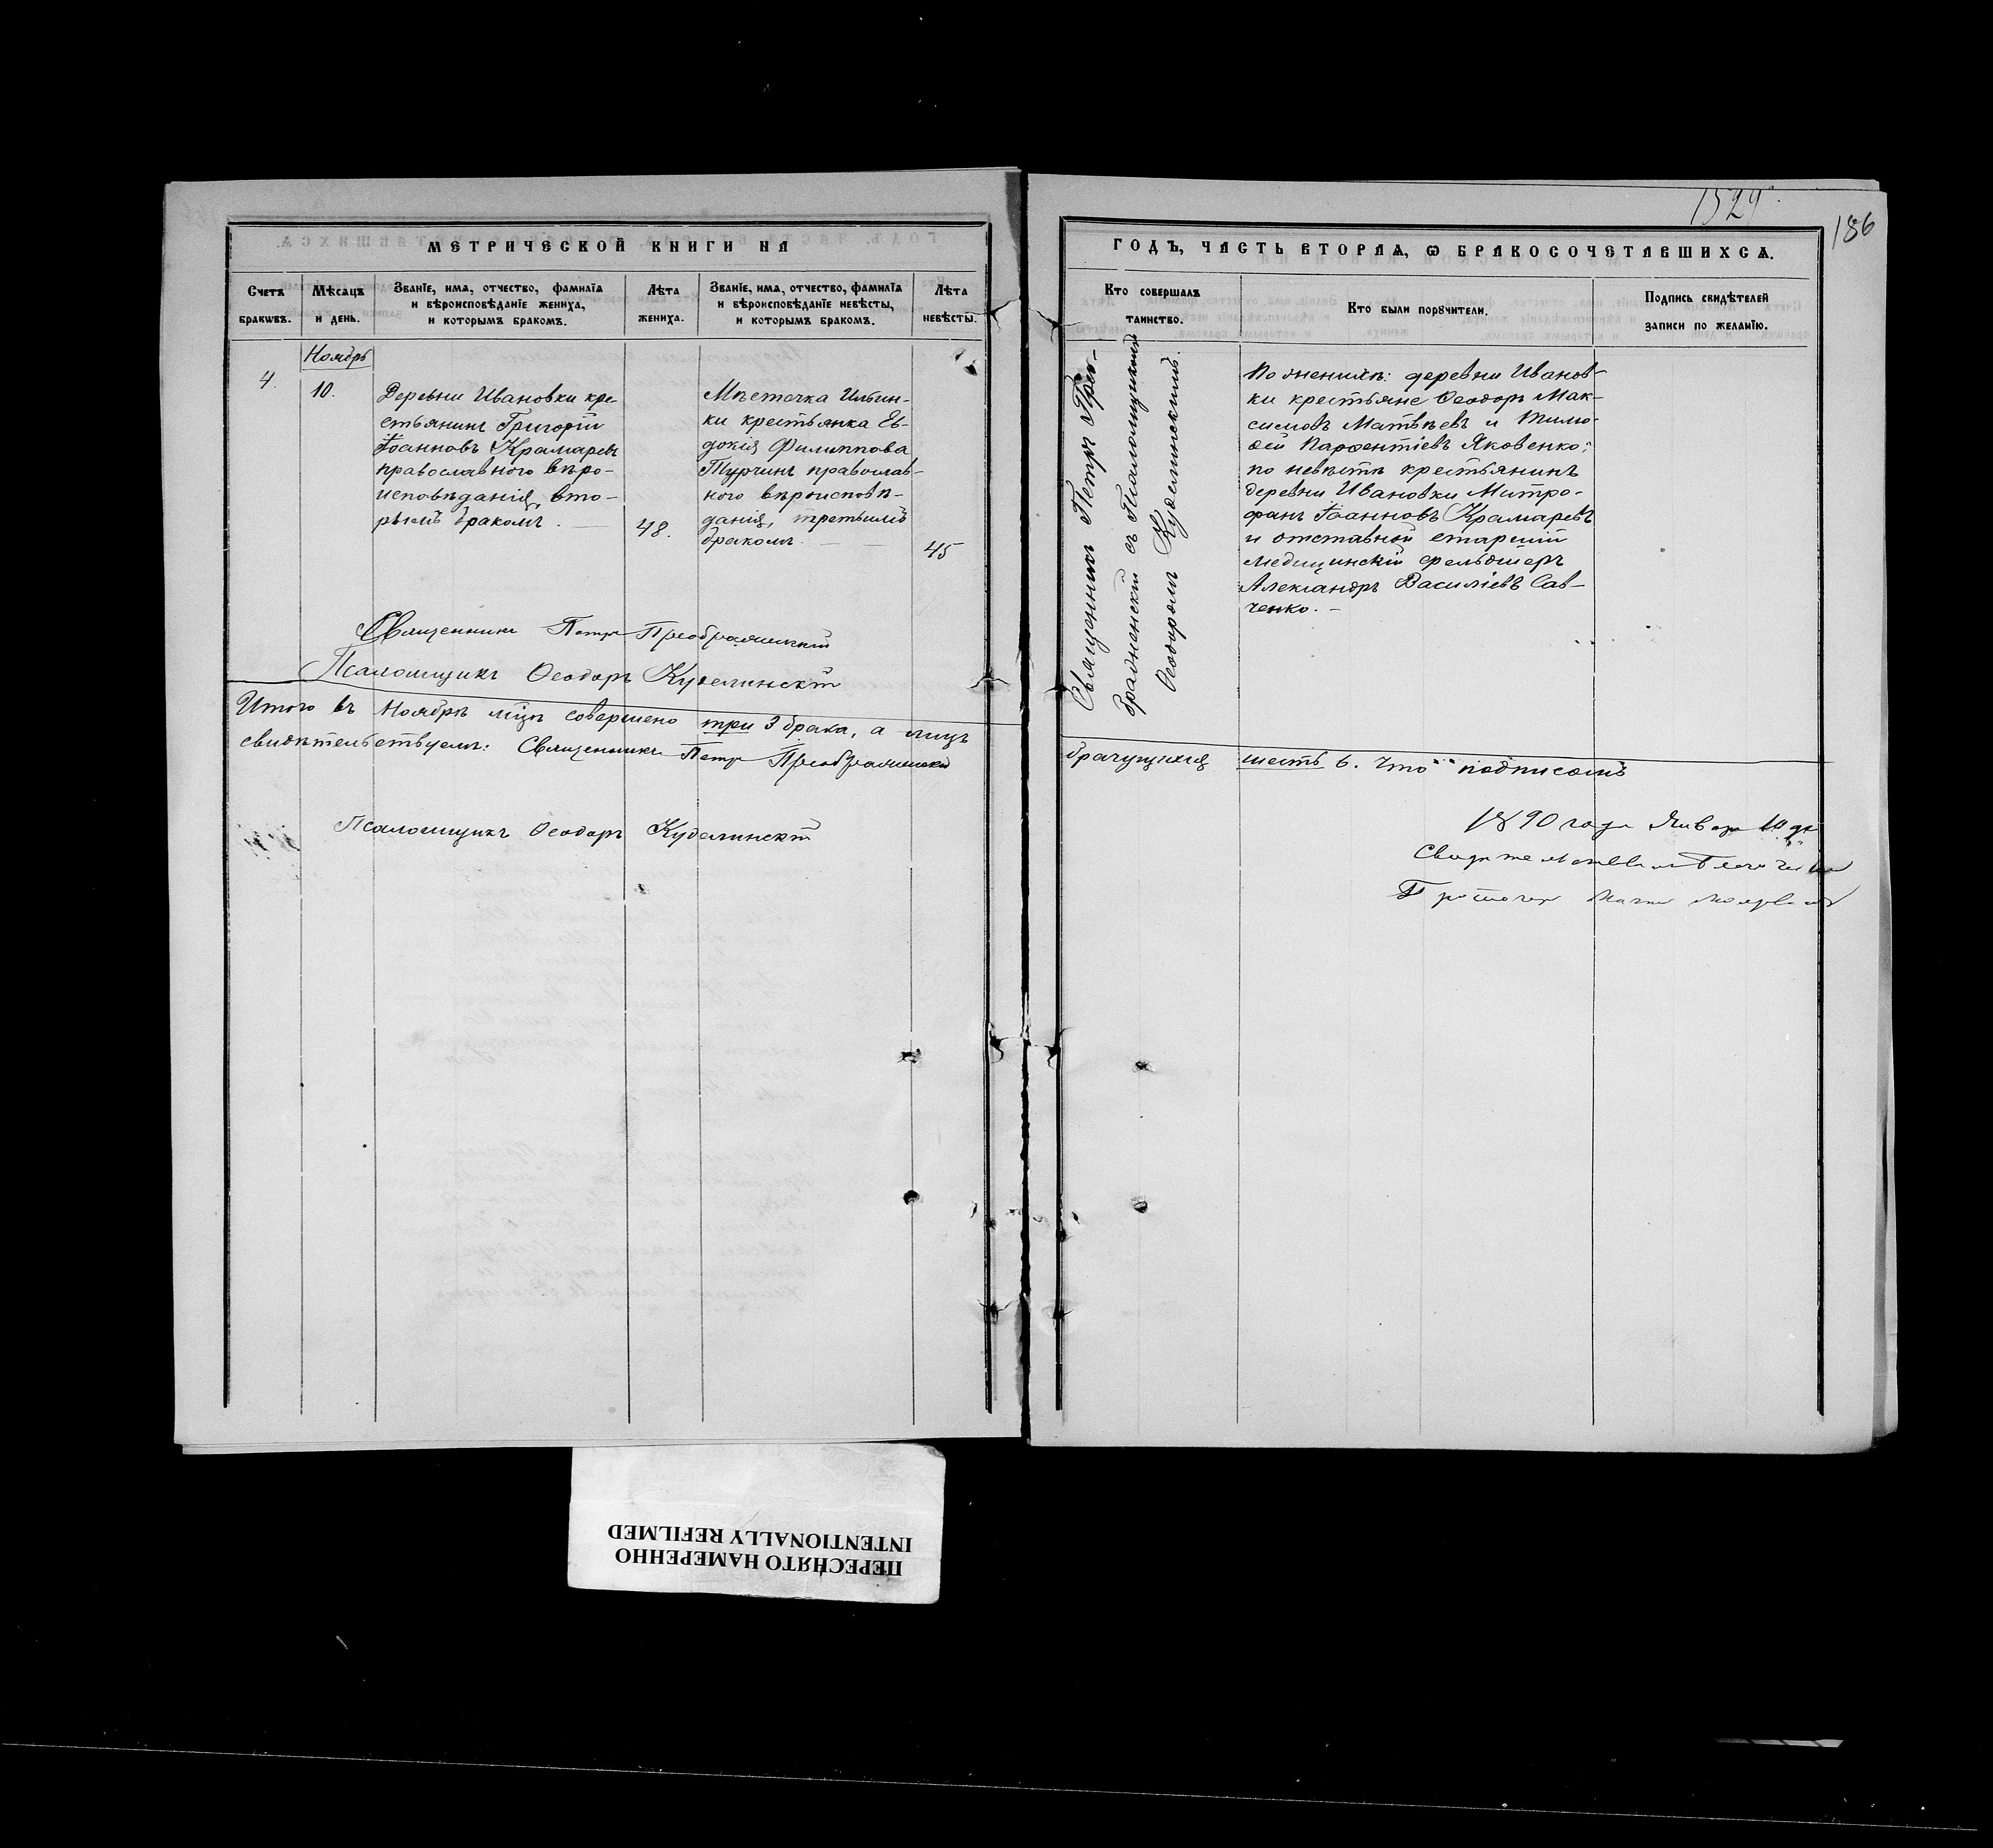 МЕТРИЧЕСКОЙ КНИГИ НА
Счетъ браковъ.
Мѣсяцъ и день.
Званїе, имѧ, отчество, фамилїа
и вѣроисповѣданїе жениха,
и которымъ бракомъ.
Лѣта жениха.
Званїе, имѧ, отчество, фамилїа
и вѣроисповѣданїе невѣсты,
и которымъ бракомъ.
Лѣта невѣсты.
Ноябрь
4.
10.
Деревни Ивановки кре-
стьянинъ Григорій
Іоанновъ Крамаревъ
православного вѣро-
исповѣданія, вто-
рымъ бракомъ.
48.
Мѣстечка Ильин-
ки крестьянка Ев-
докія Филиппова
Турчинъ православ-
ного вѣроисповѣ-
данія, третьимъ
бракомъ.
45
Священникъ Петръ Преображенскій
Псаломщикъ Ѳеодоръ Куделинскій
Итого въ Ноябрѣ мцѣ совершено три 3 брака, а лицъ
свидѣтельствуемъ: Священникъ Петръ Преображенскій
Псаломщикъ Ѳеодоръ Куделинскій
1529.
186
ГОДЪ, ЧАСТЬ ВТОРАѦ, Ѡ БРАКОСОЧЕТАВШИХСѦ.
Кто совершалъ
таинство.
Кто были порꙋчители.
Подпись свидѣтелей
записи по желанїю.
Священникъ Петръ Прео-
браженскій съ Псаломщикомъ
Ѳеодоромъ Куделинскимъ.
По женихѣ: деревни Иванов-
ки крестьяне Ѳеодоръ Мак-
симовъ Матвѣевъ и Тимо-
ѳей Парфентіевъ Яковенко;
по невѣстѣ крестьянинъ
деревни Ивановки Митро-
фанъ Іоанновъ Крамаревъ
и отставной старшій
медицинскій фельдшеръ
Александръ Василіевъ Сав-
ченко.
брачущихся шесть 6. Что подписомъ
1890 года Января 10 дн
ПЕРЕСНЯТО НАМЕРЕННО
INTENTIONALLY REFILMED